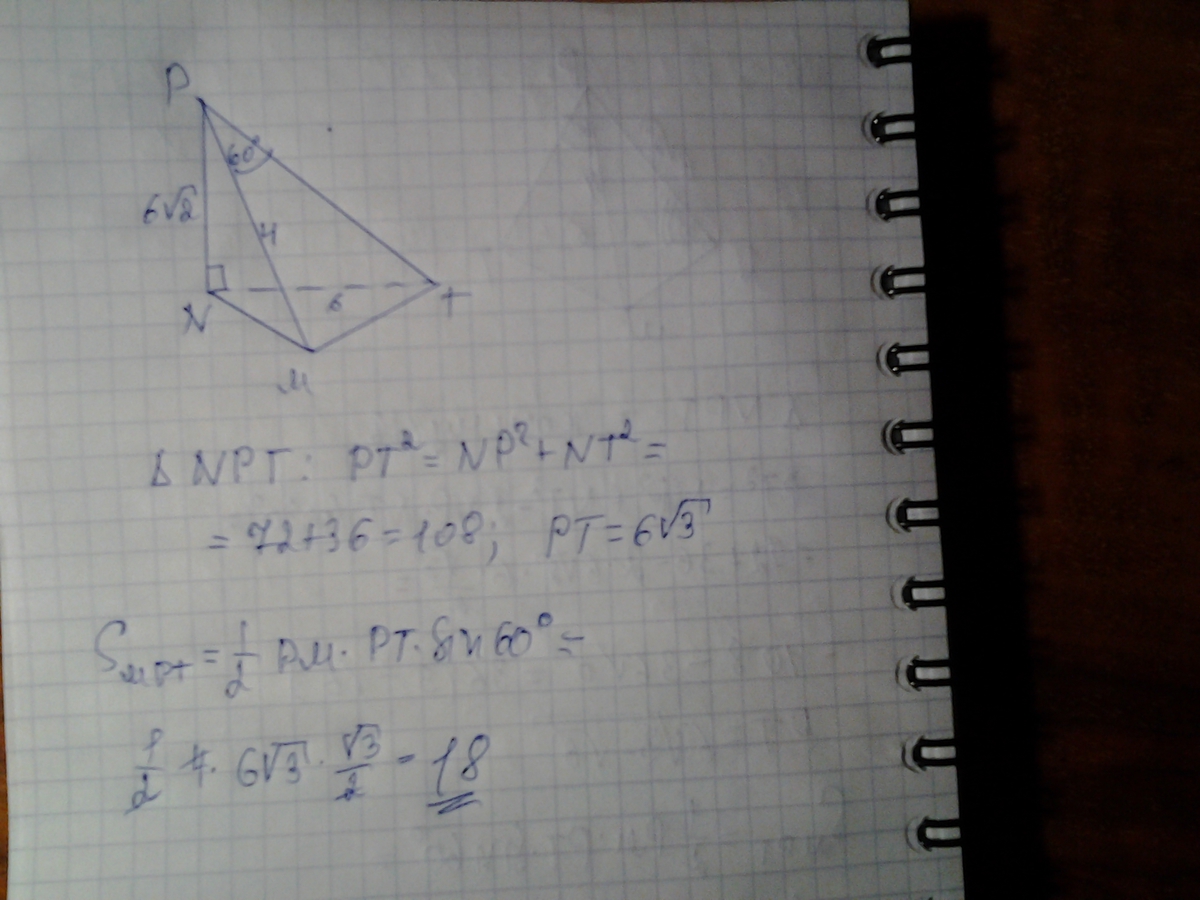 P
60°
6√2
4
6
N
T
M
Δ NPT: PT² = NP² + NT² =
= 72+36=108; PT=6√3
S_MPT = 1/2 PM · PT · Sin 60° =
1/2 4 · 6√3 · √3/2 = 18